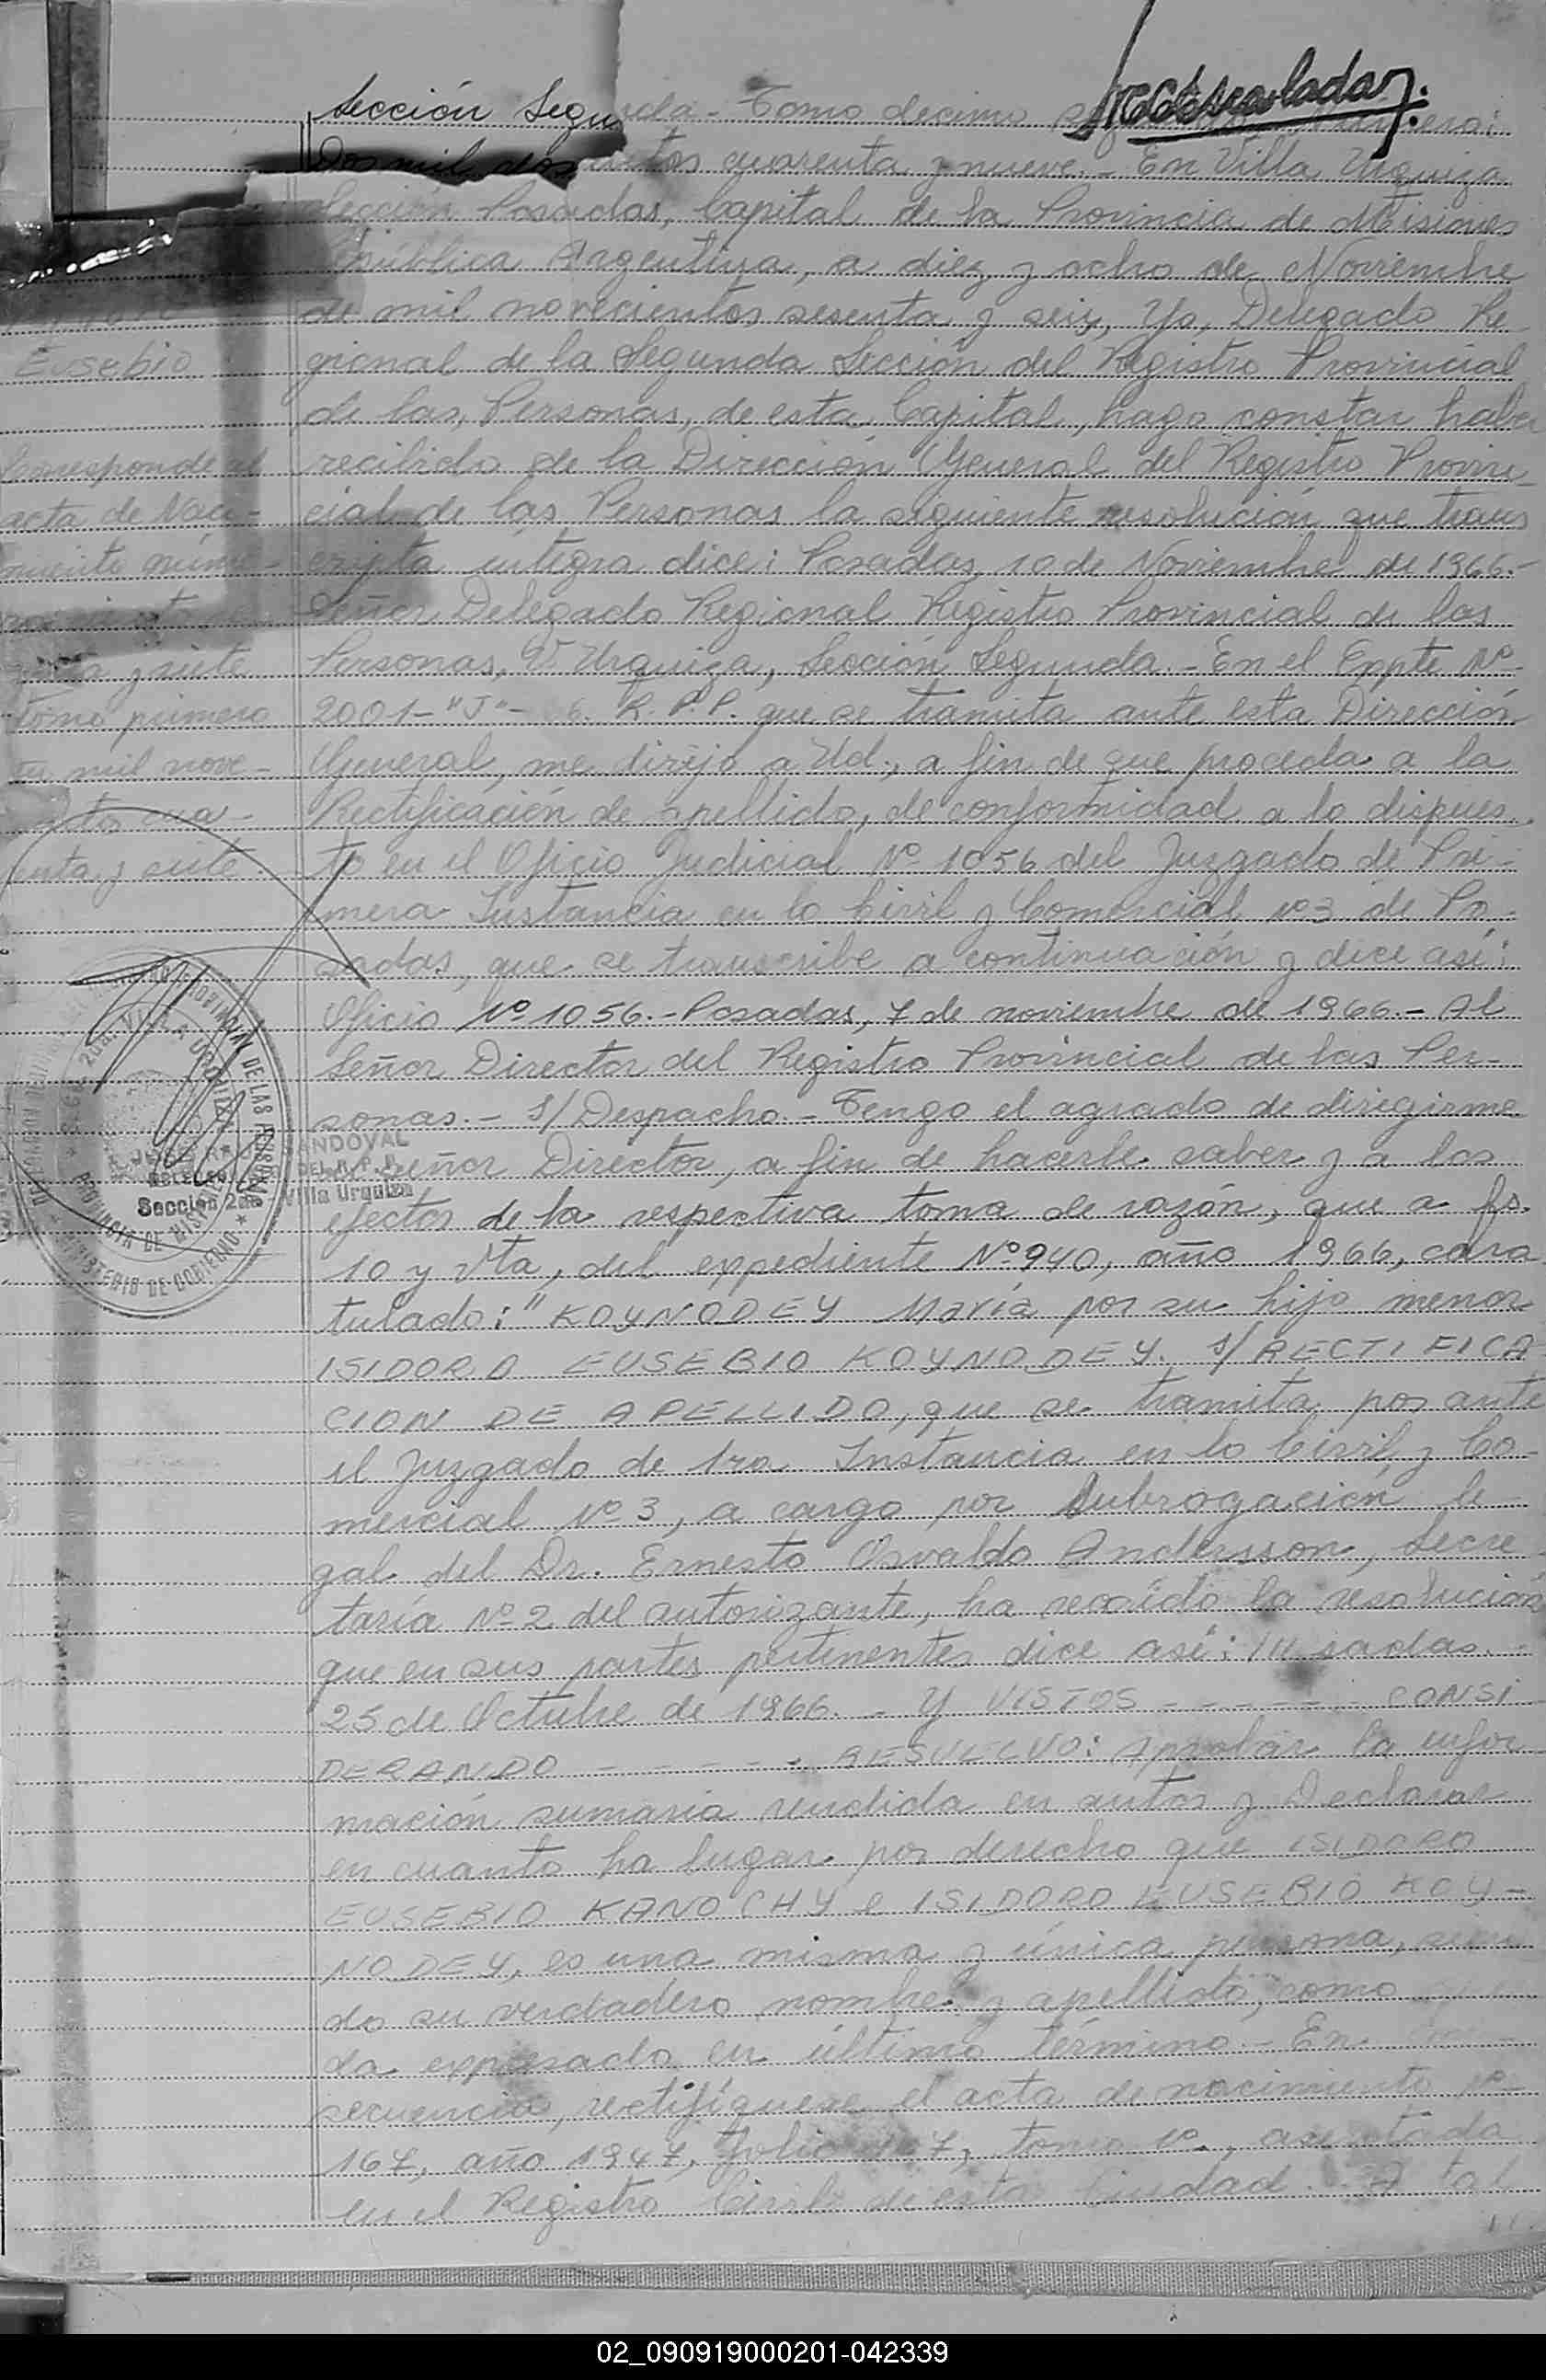 Sección Segunda - Tomo decimo
Dos mil doscientos cuarenta y nueve. - En Villa Urquiza
Sección Posadas, Capital de la Provincia de Misiones
República Argentina, a diez y ocho de Noviembre
de mil novecientos sesenta y seis, Yo, Delegado Re
gional de la Segunda Sección del Registro Provincial
de las Personas, de esta Capital, hago constar haber
recibido de la Dirección General del Registro Provin_
cial de las Personas la siguiente resolución que trans
cripta íntegra dice: Posadas, 10 de Noviembre de 1966.-
Señor Delegado Regional Registro Provincial de las
Personas, Va Urquiza, Sección Segunda. - En el Expte Nº
2001-"J"- 6. R.P.P. que se tramita ante esta Dirección
General, me dirijo a Ud., a fin de que proceda a la
Rectificación de apellido, de conformidad a lo dispues_
to en el Oficio Judicial Nº 1056 del Juzgado de Pri-
mera Instancia en lo Civil y Comercial Nº 3 de Po-
sadas, que se transcribe a continuación y dice así:
Oficio Nº 1056.- Posadas, 7 de noviembre de 1966.- Al
Señor Director del Registro Provincial de las Per-
sonas. - S/Despacho. - Tengo el agrado de dirigirme
señor Director, a fin de hacerle saber y a los
efectos de la respectiva toma de razón, que a fs.
10 y vta, del expediente Nº 940, año 1966, cara
tulado: "KOYNODEY María por su hijo menor
ISIDORO EUSEBIO KOYNODEY. S/RECTIFICA
CION DE APELLIDO, que se tramita por ante
el Juzgado de 1ra Instancia en lo Civil y Co-
mercial Nº 3, a cargo por subrogación le-
gal del Dr. Ernesto Osvaldo Andersson, Secre
taría Nº 2 del autorizante, ha recaído la resolución
que en sus partes pertinentes dice así: ///sadas.-
25 de Octubre de 1966. - Y VISTOS - - - - - CONSI
DERANDO - - - - - RESUELVO: Aprobar la infor
mación sumaria rendida en autos y Declarar
en cuanto ha lugar por derecho que ISIDORO
EUSEBIO KANOCHY e ISIDORO EUSEBIO KOY-
NODEY, es una misma y única persona, sien
do su verdadero nombre y apellido, como
da expresado en último término. - En
secuencia, rectifíquese el acta de nacimiento Nº
167, año 1947, folio 7, tomo 1º., asentada
en el Registro Civil de esta Ciudad. A tal
Eusebio
Corresponde al
acta de Naci-
miento núme-
y siete
tomo primero
mil nove-
cua-
renta y siete.
REGISTRO PROVINCIAL DE LAS PERSONAS
SECC. 2da. VILLA URQUIZA
PROVINCIA DE MISIONES
MINISTERIO DE GOBIERNO
SANDOVAL
DELEGADO DEL R. P. P.
Sección 2da Villa Urquiza
02_090919000201-042339